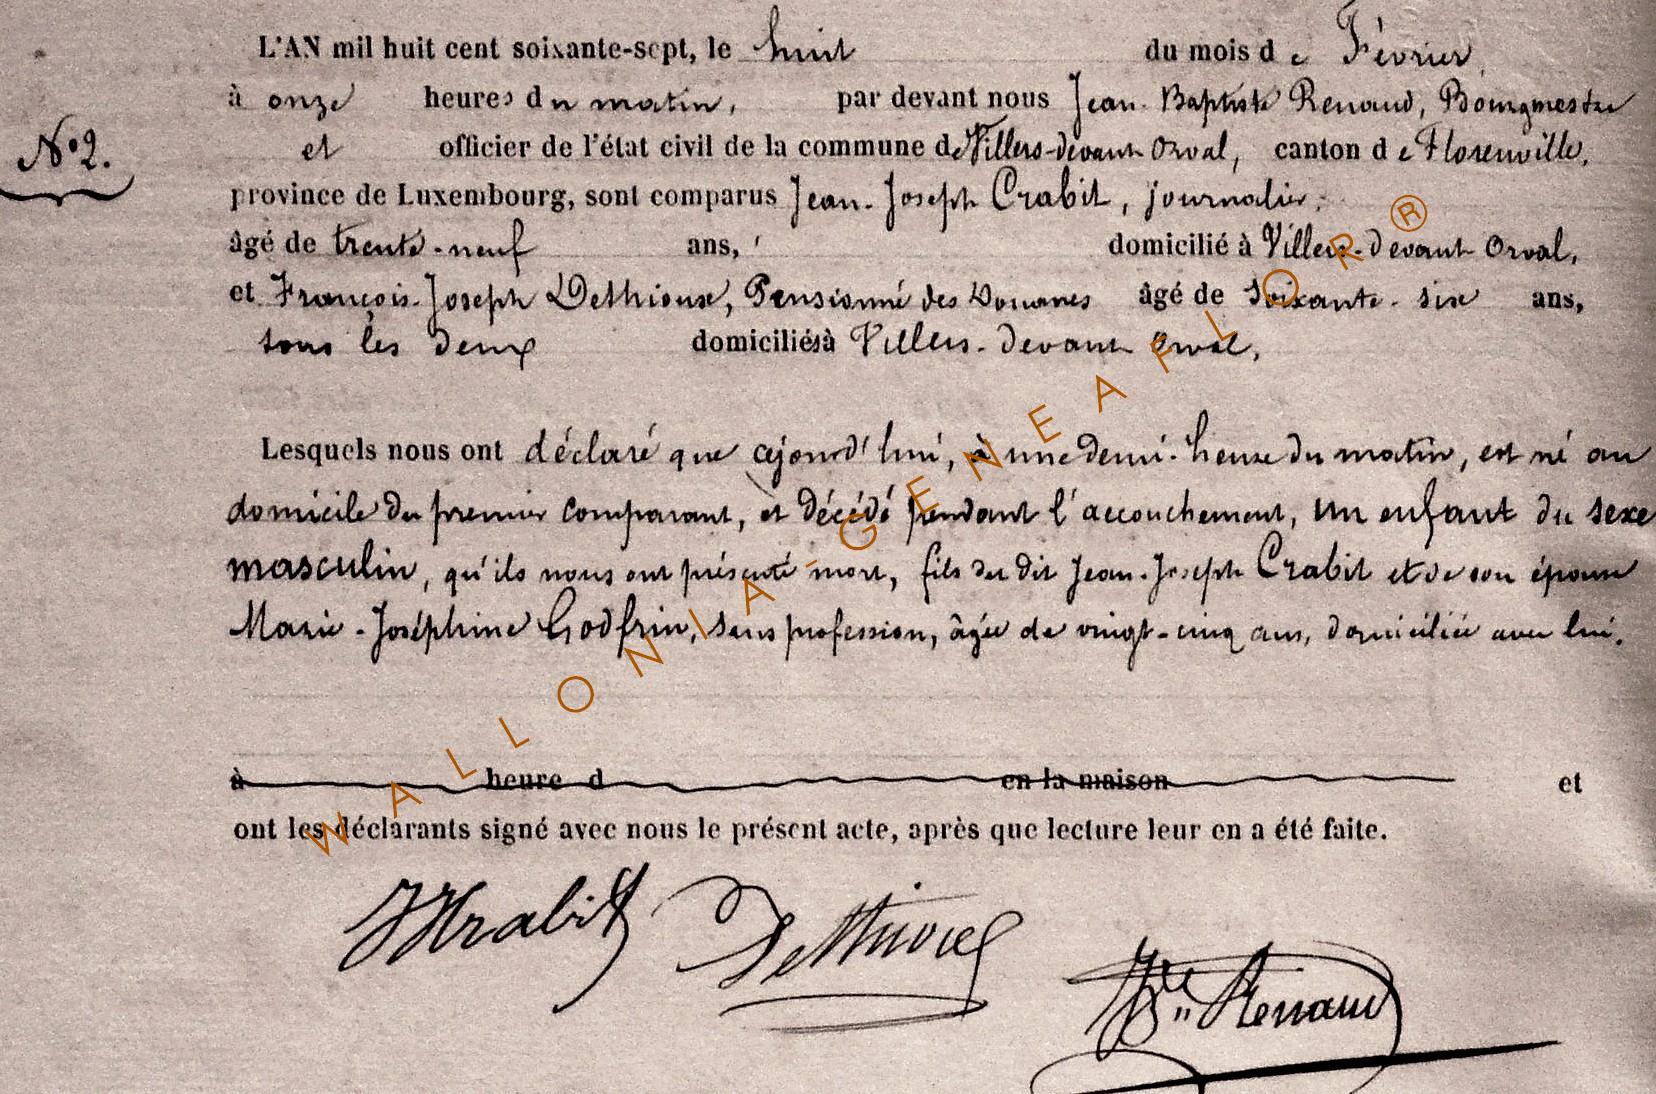 L'AN mil huit cent soixante-sept, le huit du mois de Février,
à onze heures du matin, par devant nous Jean-Baptiste Renaud, Bourgmestre
N° 2.
et officier de l'état civil de la commune de Villers-devant-Orval, canton de Florenville,
province de Luxembourg, sont comparus Jean-Joseph Crabit, journalier,
âgé de trente-neuf ans, domicilié à Villers-devant Orval,
et François-Joseph Dethioux, Pensionné des Douanes âgé de soixante-six ans,
tous les deux domiciliés à Villers-devant Orval,
Lesquels nous ont déclaré que cejourd'hui, à une demi-heure du matin, est né au
domicile du premier comparant, et décédé pendant l'accouchement, un enfant du sexe
masculin, qu'ils nous ont présenté mort, fils du dit Jean-Joseph Crabit et de son épouse
Marie-Joséphine Godfrin, sans profession, âgée de vingt-cinq ans, domiciliée avec lui.
à heure d en la maison et
ont les déclarants signé avec nous le présent acte, après que lecture leur en a été faite.
JJCrabit Dethioux
JBte Renaud
WALLONIA-GENEAFLOR®